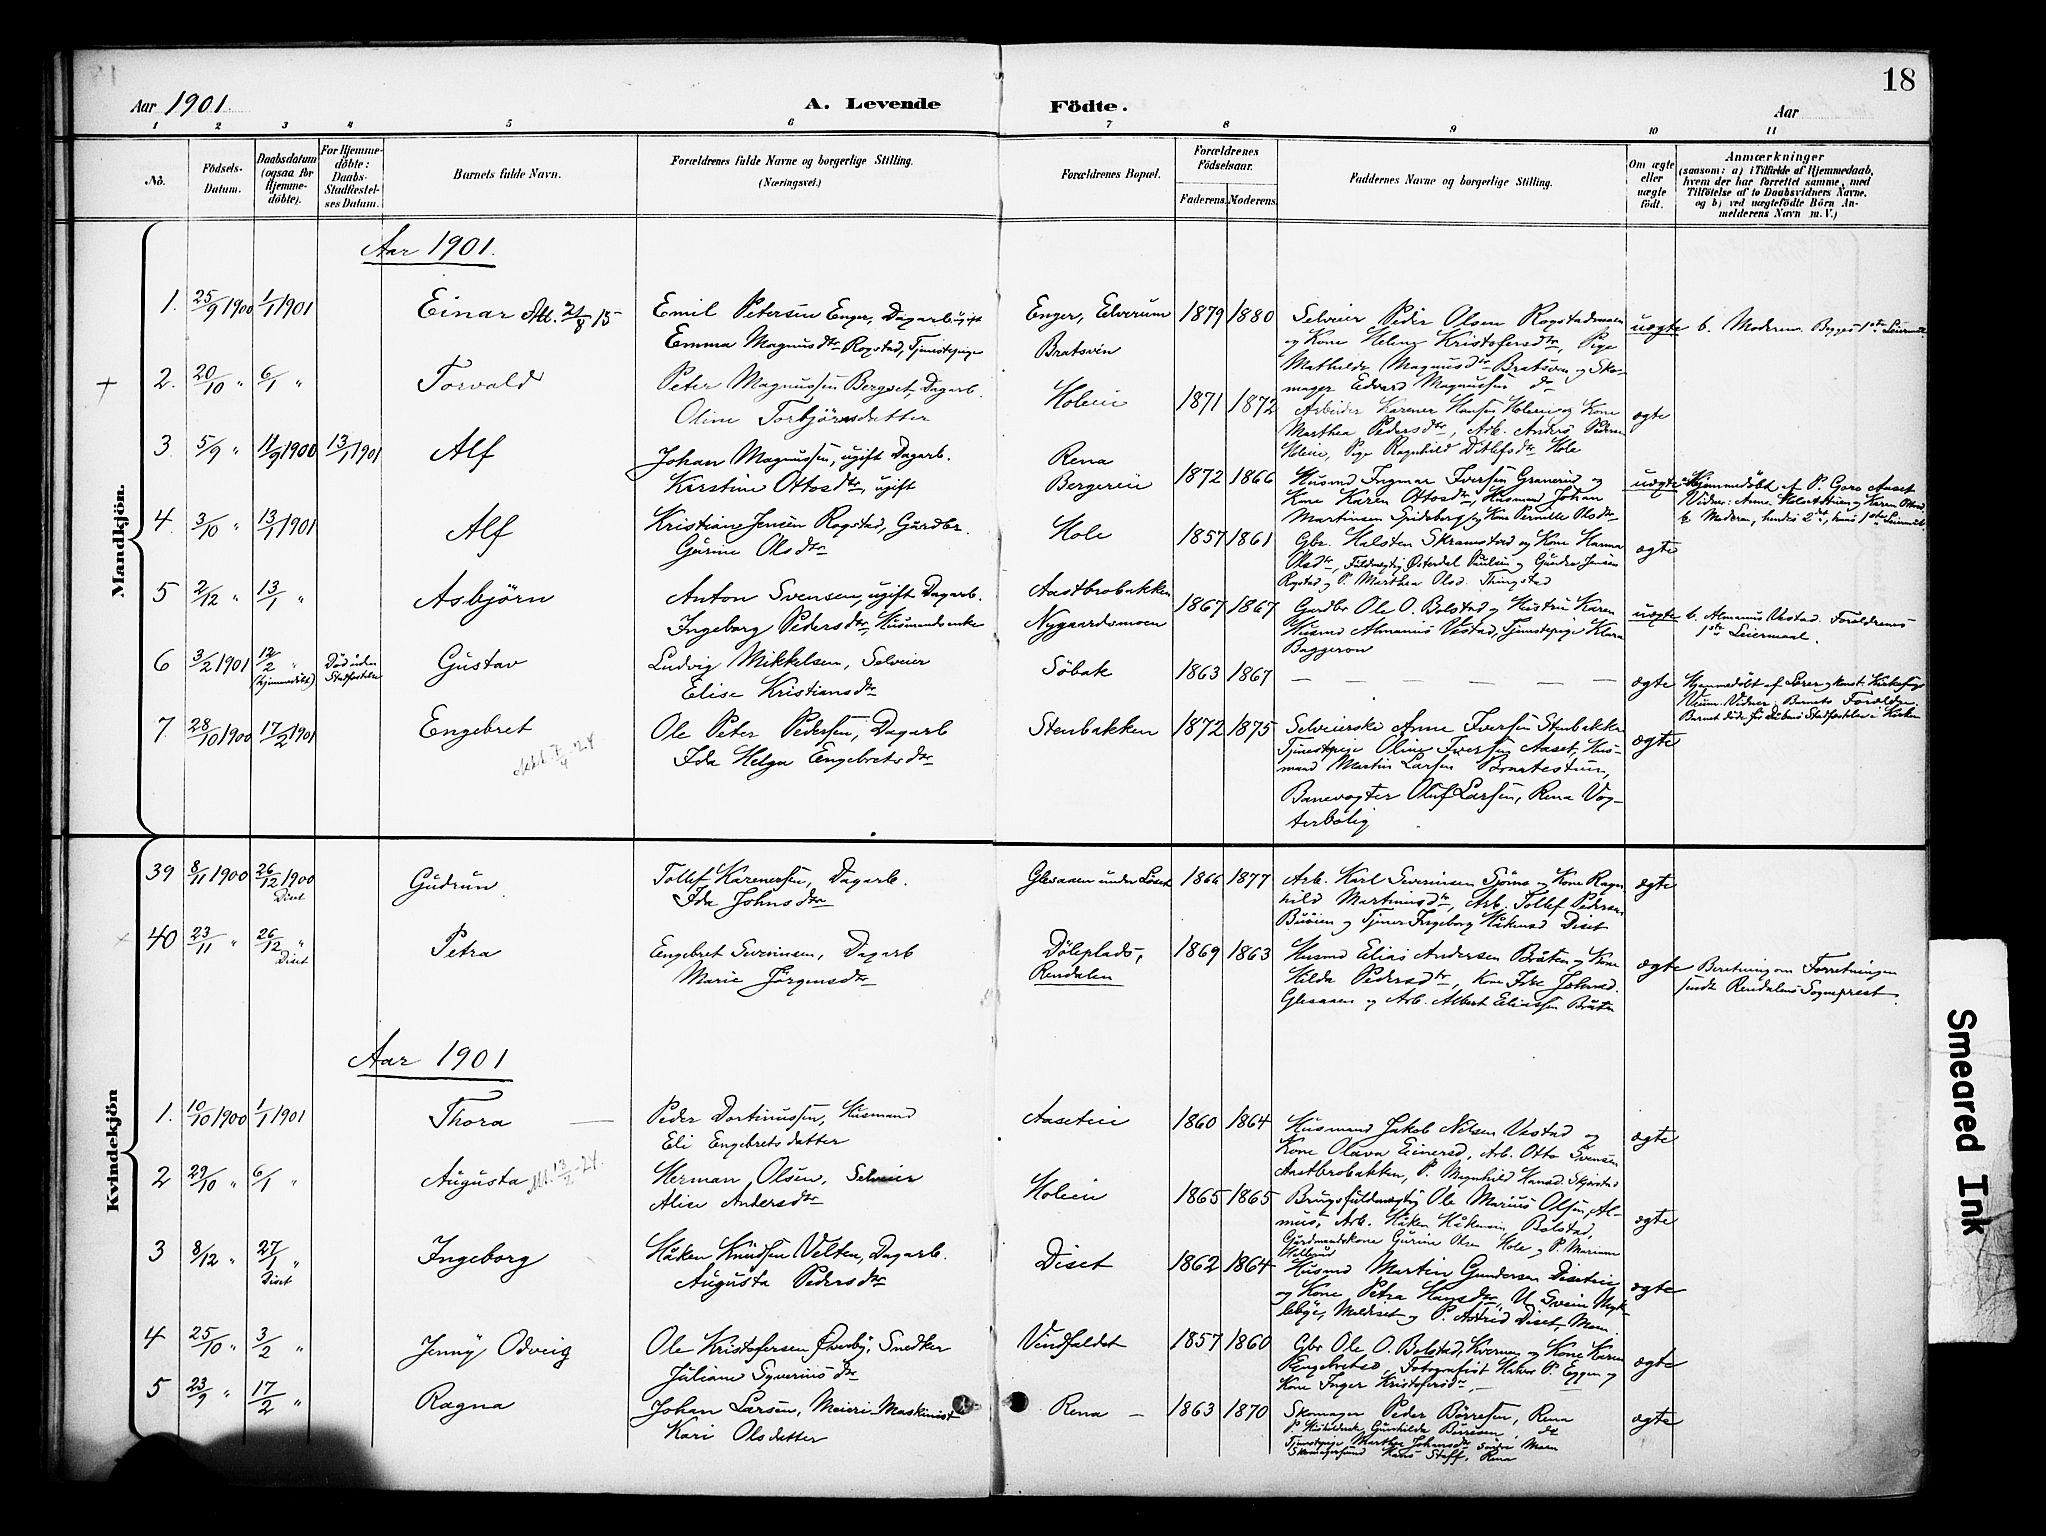 18
Aar 1901.
A. Levende Födte.
Aar
1 2 3 4 5 6 7 8 9 10 11
No.
Födsels-Datum.
Daabsdatum (ogsaa for Hjemme-döbte).
For Hjemme-döbte: Daabs-Stadfæstel-ses Datum.
Barnets fulde Navn.
Forældrenes fulde Navne og borgerlige Stilling.
(Næringsvei.)
Forældrenes Bopæl.
Forældrenes Födselsaar.
Faderens. Moderens.
Faddernes Navne og borgerlige Stilling.
Om ægte eller uægte födt.
Anmærkninger
(saasom: a) i Tilfælde af Hjemmedaab, hvem der har forrettet samme, med Tilföielse af to Daabsvidners Navne, og b) ved uægtefödte Börn Anmelderens Navn m. V.)
Mandkjön.
Aar 1901.
1. 25/9 1900 1/1 1901 Einar
Emil Petersen Enger, Dagarb. ugift
Emma Magnusdtr Rogstad, Tjenestepige
Enger, Elverum
Bratsven
1879 1880
Selveier Peder Olsen Rogstadmoen
og Kone Helene Kristofersdtr, Pige
Mathilde Magnusdtr Bratsven og Sko-
mager Edvard Magnussen do
uægte
b. Moderen. Begges 1ste Leiermaal
2. 20/10 " 6/1 " Torvald
Peter Magnussen Bergset, Dagarb.
Oline Torbjörnsdatter
Holeie
1871 1872
Arbeider Karener Hansen Holeie og Kone
Marthea Pedersdtr, Arb. Anders Pedersen
Holeie, Pige Ragnhild Ditlefsdtr Hole
ægte
3. 5/9 " 11/9 1900 13/1 1901 Alf
Johan Magnussen, ugift Dagarb.
Kirstine Ottosdtr, ugift
Rena
Bergereie
1872 1866
Husmd Ingmar Iversen Graneeid og
Kone Karen Ottosdtr, Husmand Johan
Martinsen Spidsberg og Kone Pernille Olsdtr
uægte
Hjemmedöbt af P. Goro Aaset
b. Moderen, hendes 2det, hans 1ste Leiermaal
4. 3/10 " 13/1 1901 Alf
Kristian Jensen Rogstad, Gaardbr.
Gurine Olsdtr
Hole
1857 1861
Gbr. Halsten Skramstad og Kone Hanna
Olsdtr, Fuldmægtig Österdal Paulsen og Gunda Jensen
Rogstad og P. Marthea Olsd. Thingstad
ægte
5 2/12 " 13/1 " Asbjörn
Anton Svensen, ugift Dagarb.
Ingeborg Pedersdtr, Husmandsenke
Aastbrobakken
Nygaardsmoen
1867 1867
Gardbr Ole O. Bolstad og Hustru Karen
Husmd Almanius Vestad, Tjenestepige Klara
Baggerom
uægte
b. Almanus Vestad. Forældrenes
1ste Leiermaal.
6 3/2 1901 12/2 " (hjemmedöbt) Död uden Stadfæstelse Gustav
Ludvig Mikkelsen, Selveier
Elise Kristiansdtr
Söbak
1863 1867
— — — — — —
ægte
Hjemmedöbt af Lærer og konst. Kirkesanger
Vidner: Barnets Forældre.
Barnet döde för Daabens Stadfæstelse i Kirken
7 28/10 1900 17/2 1901 Engebret
Ole Peter Pedersen, Dagarb
Ida Helga Engebretsdtr
Stenbakken
1872 1875
Selveierske Anne Iversen Stenbakken
Tjenestepige Oline Iversen Aaset, Hus-
mand Martin Larsen Brartestuen,
Banevogter Oluf Larsen, Rena Vog-
terbolig
ægte
Kvindekjön
39 8/11 1900 26/12 1900 Diset Gudrun.
Tollef Karenersen, Dagarb.
Ida Johnsdtr
Glesaaen under Löset
1866 1877
Arb. Karl Severinsen Sjöns og Kone Ragn-
hild Martinusdtr, Arb. Tollef Pedersen
Buöien og Tjener Ingeborg Håkensd Diset
ægte
40 23/11 " 26/12 " Diset Petra
Engebret Severinsen, Dagarb
Marie Jörgensdtr
Döleplads,
Rendalen
1869 1863
Husmd Elias Andersen Bråten og Kone
Hilda Pedersdtr, Kone Ida Johnsd.
Glesaaen og Arb. Albert Eliassen Bråten
ægte
Beretning om Forretningen
sendt Rendalens Sogneprest.
Aar 1901
1. 10/10 1900 1/1 1901 Thora —
Peder Dortinussen, Husmand
Eli Engebretsdatter
Aaseteie
1860 1864
Husmand Jakob Nilsen Vestad og
Kone Olava Einersd, Arb. Otto Svensen
Aastbrobakken, P. Magnhild Hansd. Skjærstad
ægte
2 29/10 " 6/1 " Augusta
Herman Olsen, Selveier
Alise Andersdtr
Holeie
1865 1865
Brugsfuldmægtig Ole Marius Olsen, Al-
mus, Arb. Håken Håkensen, Bolstad,
Gårdmandskone Gurine Olsen Hole og P. Mariane
Hollerud
ægte
3 8/12 " 27/1 " Diset Ingeborg
Håken Knudsen Velten, Dagarb.
Augusta Pedersdtr
Diset
1862 1864
Husmd Martin Gundersen Diseteie
og Kone Petra Hansdtr, U. Svein Myk-
lebye, Moldiset og P. Astrid Diset, Moen.
ægte
4 25/10 " 3/2 " Jenny Odveig
Ole Kristofersen Överby, Snedker
Juliane Syveriusdtr
Vindfaldet
1857 1860
Gbr Ole O. Bolstad, Kvernen og Kone Karen
Engebretsd, Fotografist Håkon P. Eggen og
Kone Inger Kristofersdtr —
ægte
5 23/9 " 17/2 " Ragna
Johan Larsen, Meieri-Maskinist
Kari Olsdatter
Rena —
1863 1870
Skomager Peder Börresen, Rena
P. Gunhilda Börresen, do
Tjenestepige Marthe Johansdtr Söndre Moen
Skomagersvend Hans Staff, Rena
ægte
Smeared Ink